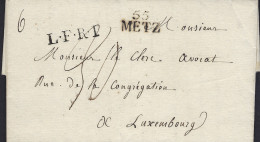 6
55
METZ
Monsieur
L.F.R.I
Monsieur le Clerc avocat
Rue de la Congrégation
a Luxembourg